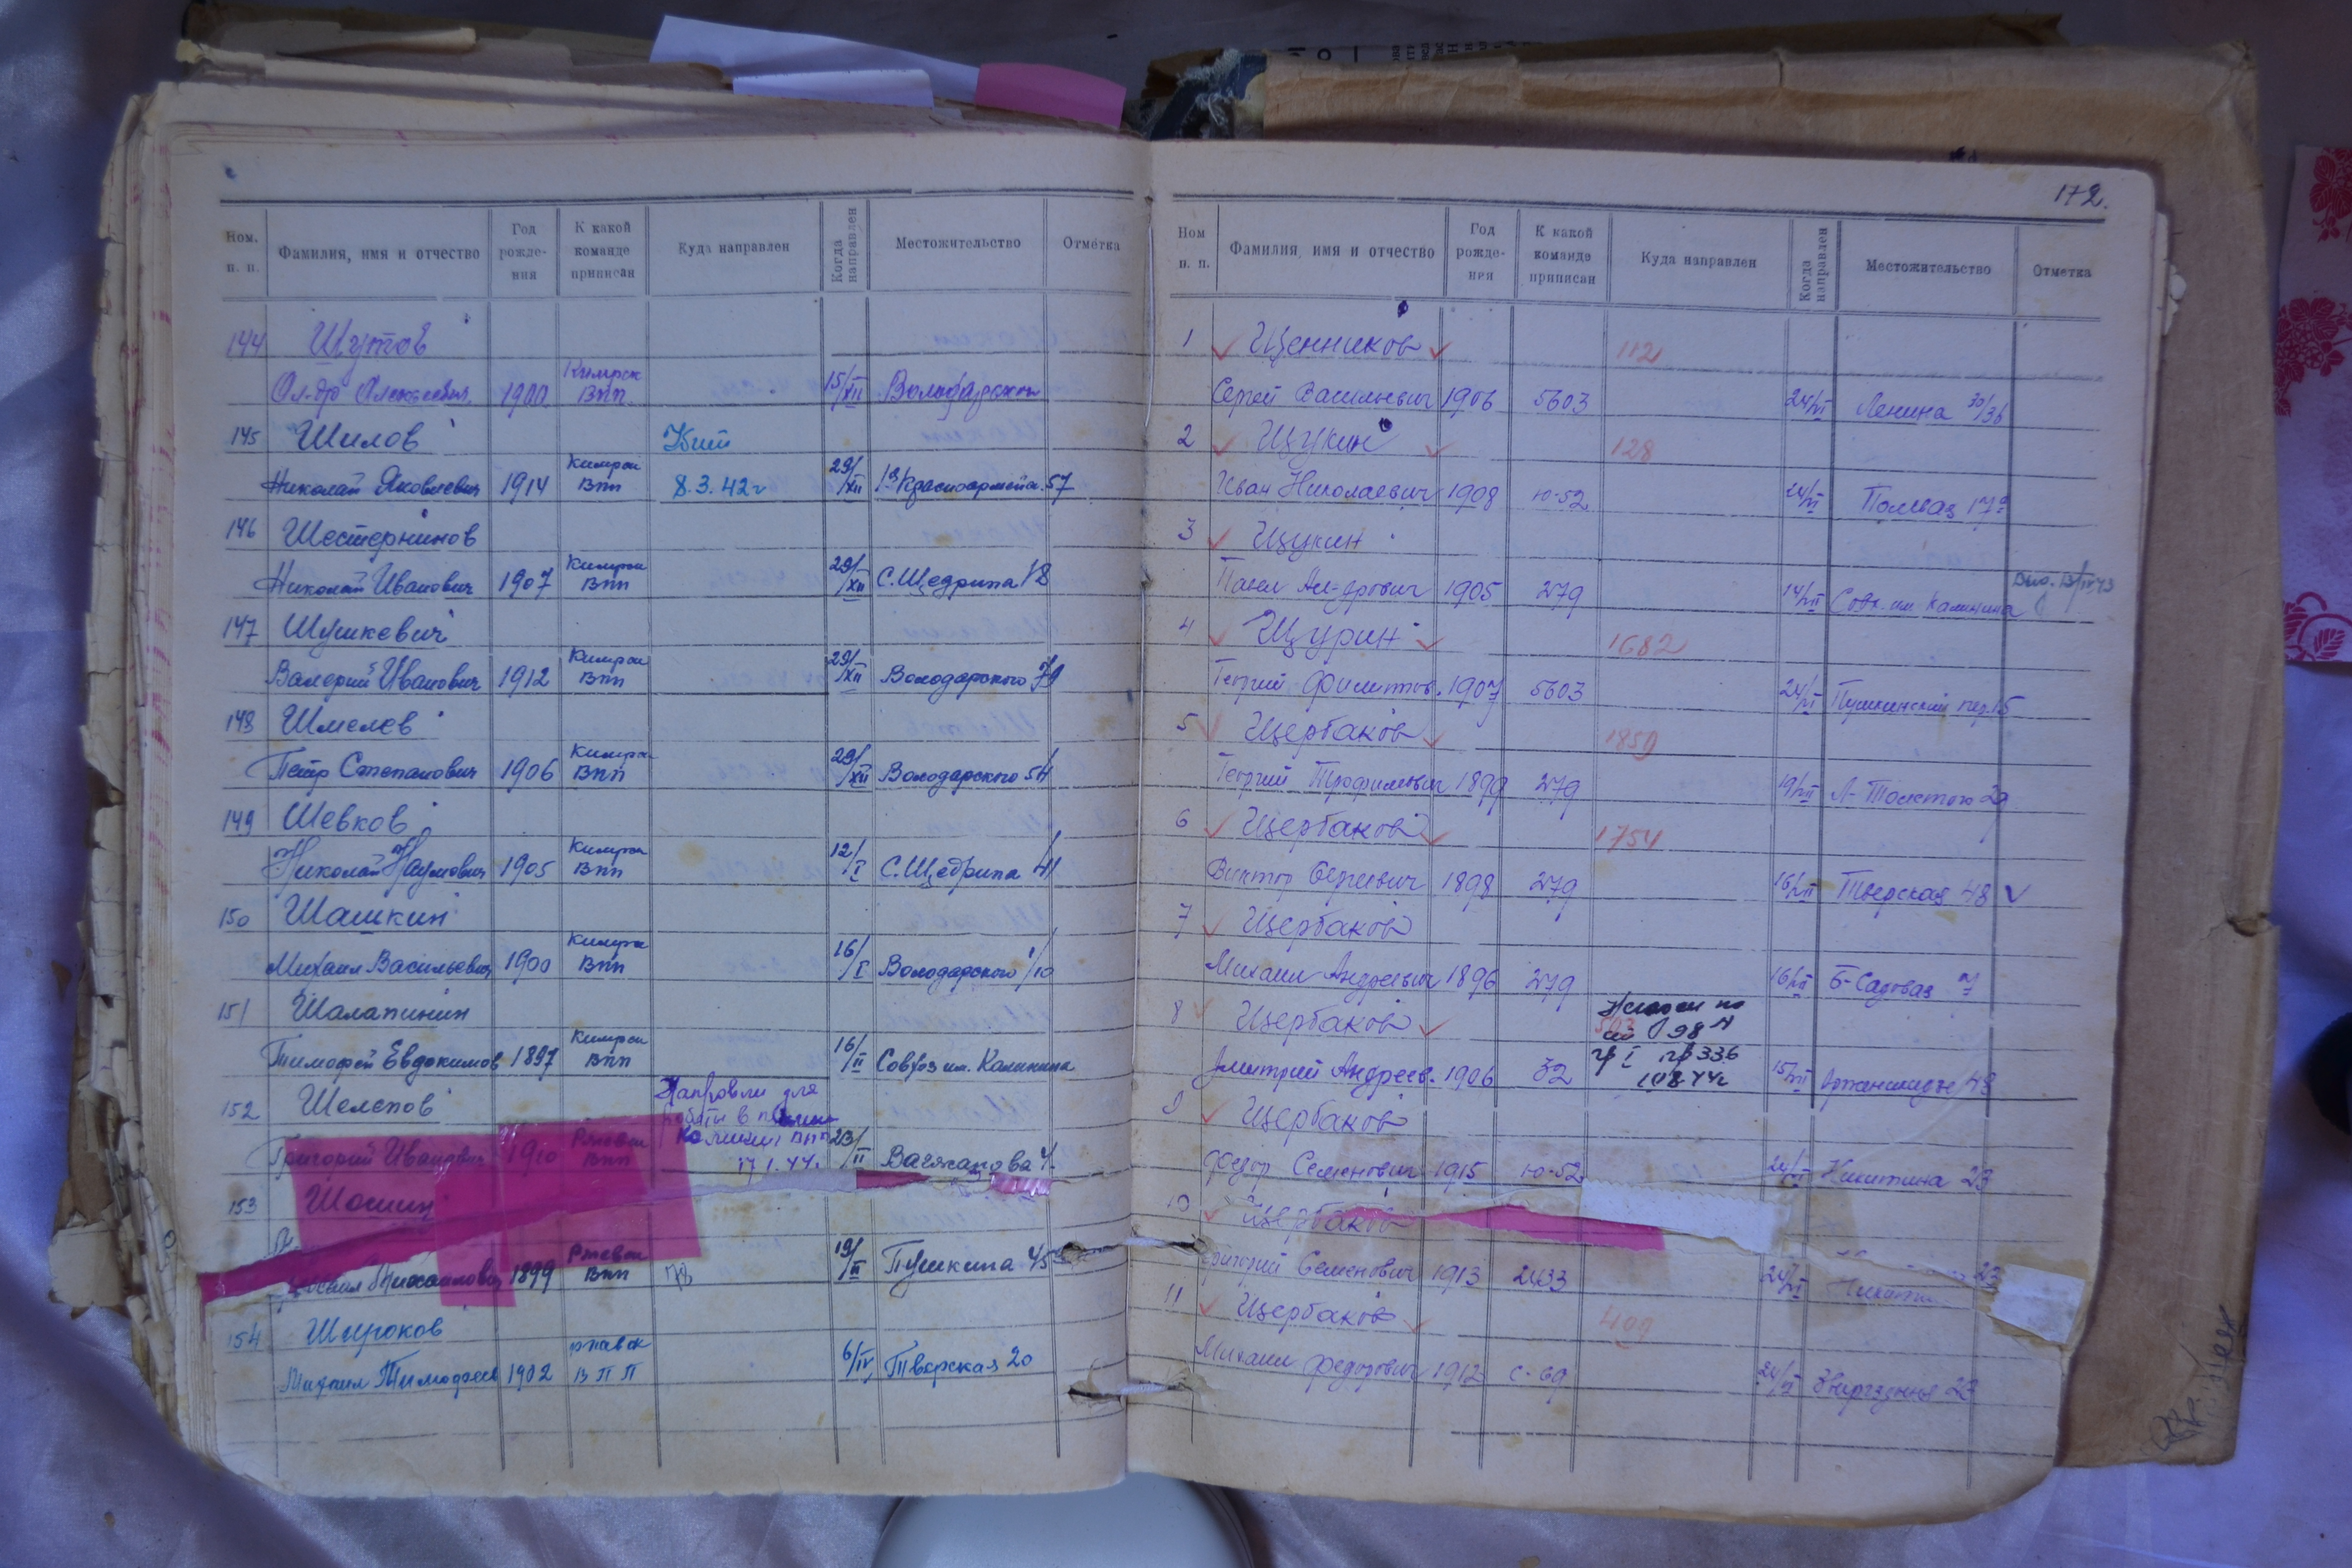 Ном. п. п. Фамилия, имя и отчество Год рожде- ния К какой команде приписан Куда направлен Когда направлен Местожительство Отметка
144 Шутов
Ал-др Алексеевич 1900 Кимрск ВПП 15/XII Володарского
145 Шилов Убит
Николай Яковлевич 1914 Кимрск ВПП 8.3.42г 29/XII 1я Красноармейск. 57
146 Шестернинов
Николай Иванович 1907 Кимрск ВПП 29/XII С. Щедрина 18
147 Шушкевич
Валерий Иванович 1912 Кимрск ВПП 29/XII Володарского 79
148 Шмелев
Петр Степанович 1906 Кимрск ВПП 29/XII Володарского 54
149 Шевков
Николай Наумович 1905 Кимрск ВПП 12/I С. Щедрина 41
150 Шашкин
Михаил Васильевич 1900 Кимрск ВПП 16/I Володарского 1/10
151 Шалапинин
Тимофей Евдокимов 1897 Кимрск ВПП 16/II Совхоз им. Калинина
152 Шелепов Направлен для
работы в
Григорий Иванович 1910 Ржевск ВПП 17.1.44г. 23/II Вагжанова 4
153 Шошин
Михайлович 1899 Ржевск ВПП 78 19/III Пушкина 45
154 Широков
Михаил Тимофеев 1902 ржевск ВПП 6/IV Тверская 20
172.
Ном п. п. Фамилия, имя и отчество Год рожде- ния К какой команде приписан Куда направлен Когда направлен Местожительство Отметка
1 Щенников 112
Сергей Васильевич 1906 5603 24/VI Ленина 30/36
2 Щукин 128
Иван Николаевич 1908 10-52 24/VI Полевая 17а
3 Щукин
Павел Ал-дрович 1905 279 14/VII Совх. им Калинина
4 Щурин 1682
Георгий Филиппов. 1907 5603 24/VI Пушкинский пер. 15
5 Щербаков 1850
Георгий Трофимович 1899 279 19/VII Л-Толстого 29
6 Щербаков 1754
Виктор Сергеевич 1898 279 16/VII Тверская 48
7 Щербаков
Михаил Андреевич 1896 279 16/VII Б-Садовая 7
8 Щербаков Негоден по
Дмитрий Андреев. 1906 32 гр I пр 336 15/VII Орджоникидзе 43
9 Щербаков
Федор Семенович 1915 10-52 24/VI Никитина 23
10 Щербаков
Григорий Семенович 1913 2433 24/VI 23
11 Щербаков 409
Михаил Федорович 1912 С-69 24/VI 23